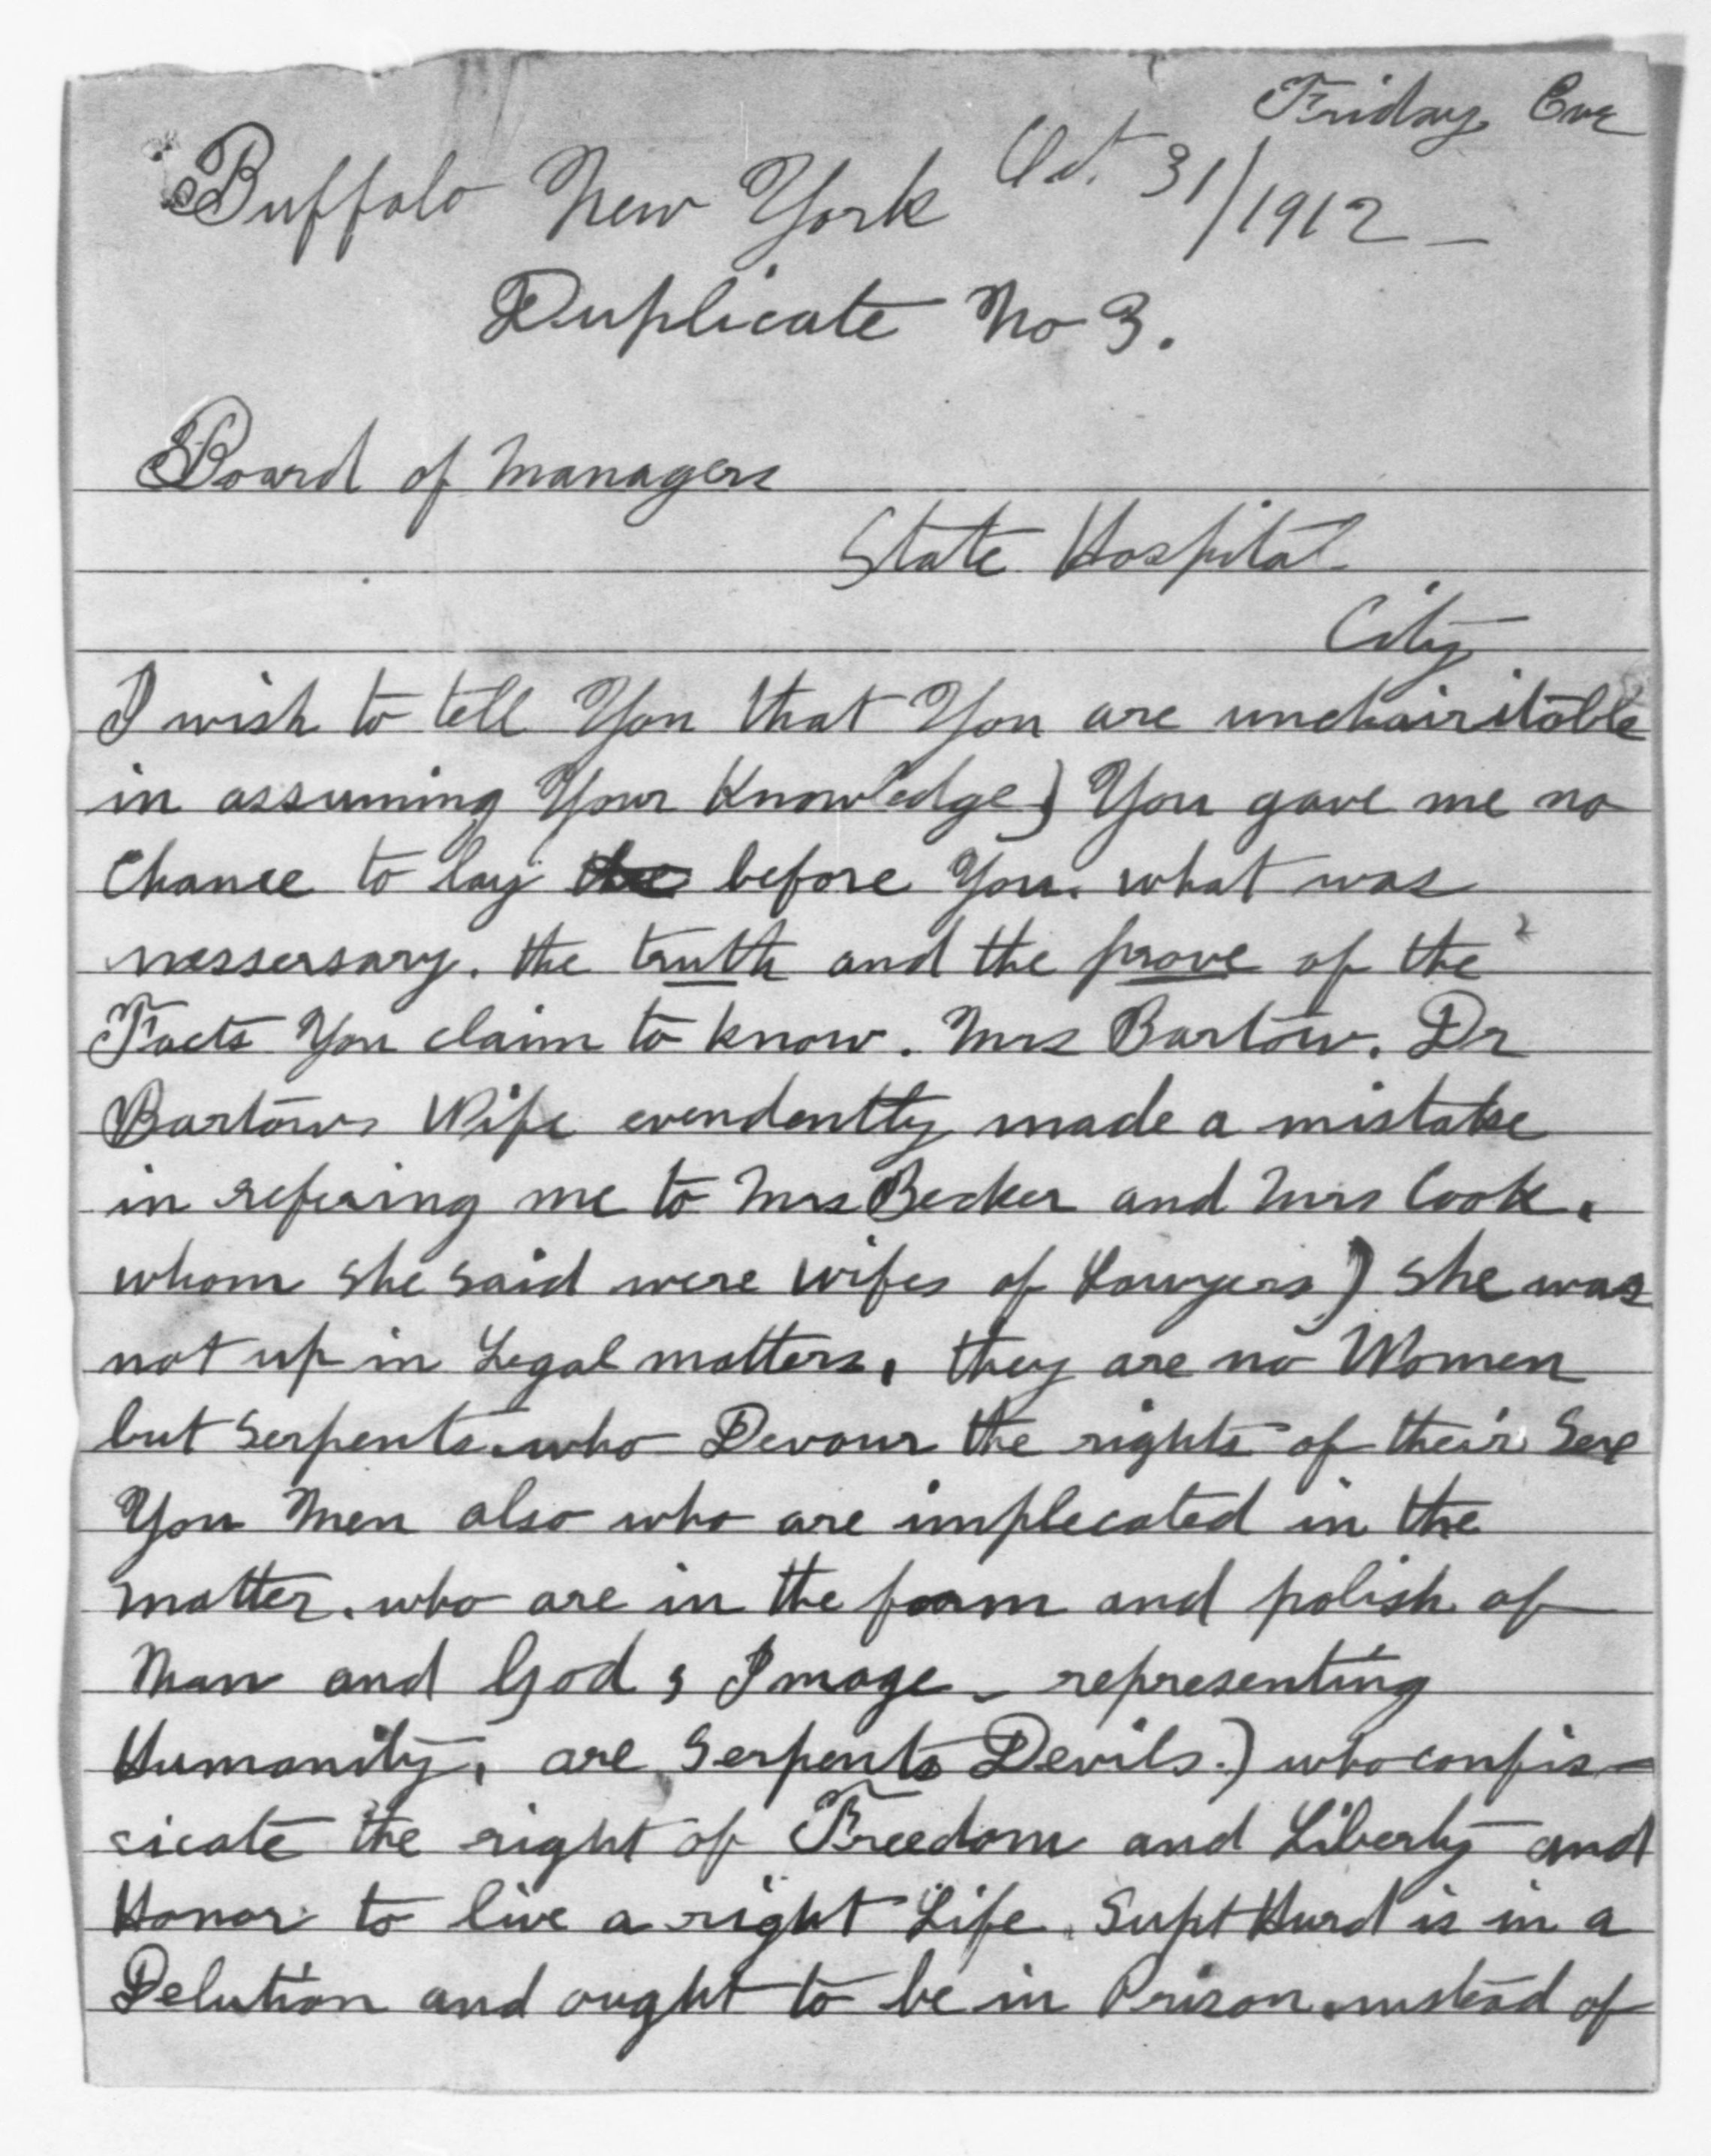 Friday Eve
Buffalo New York Oct. 31/1912 –
Duplicate No 3.
Board of Managers
State Hospital
City
I wish to tell You that You are unchairitable
in assuming Your Knowledge) You gave me no
Chance to lay the before You. what was
nessersary. the truth and the prove of the
Facts You claim to know. Mrs Bartow. Dr
Bartows Wife evendently made a mistake
in refering me to Mrs Becker and Mrs Cook.
whom she said were wifes of Lawyers) she was
not up in Legal matters. they are no Women
but Serpents. who Devour the rights of their Sex
You Men also who are implecated in the
matter. who are in the foarm and polish of
Man and God, s Image – representing
Humanity. are Serpents Devils.) who confis–
cicate the right of Freedom and Liberty and
Honor to live a right Life. Supt Hurd is in a
Delution and ought to be in Prison. instead of